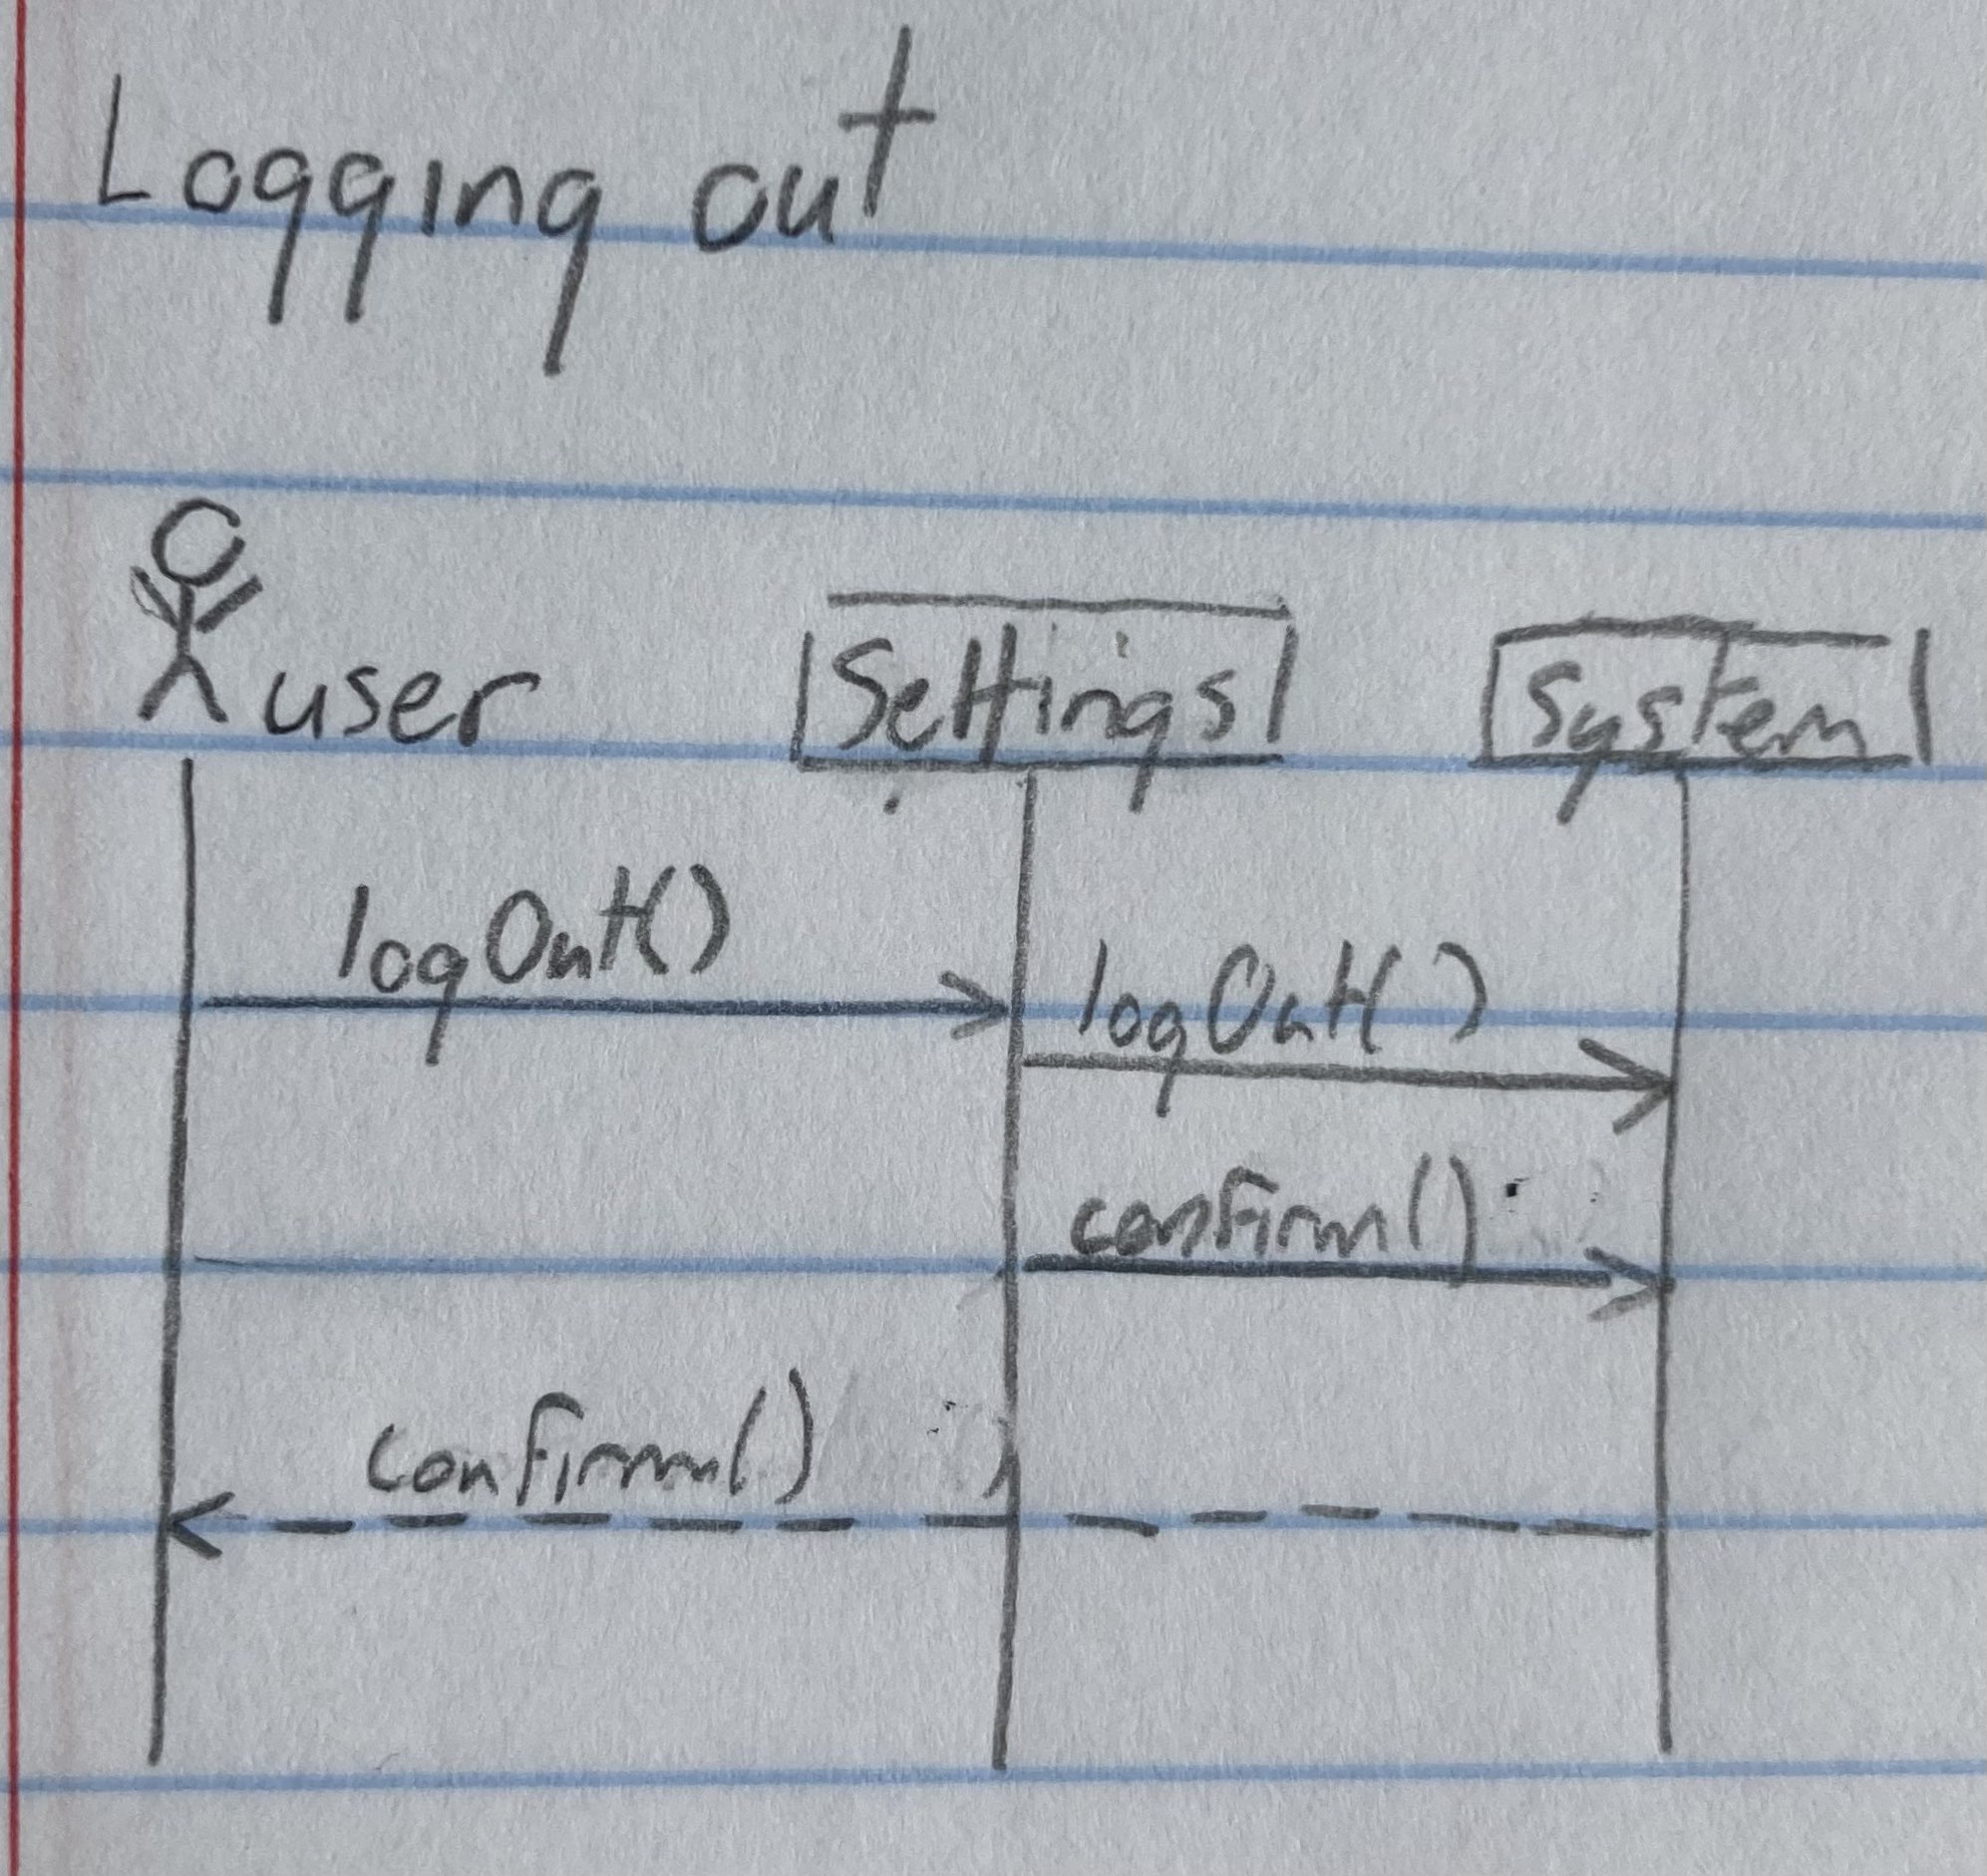 Logging out
user
Settings
System
logOut()
logOut()
confirm()
confirm()